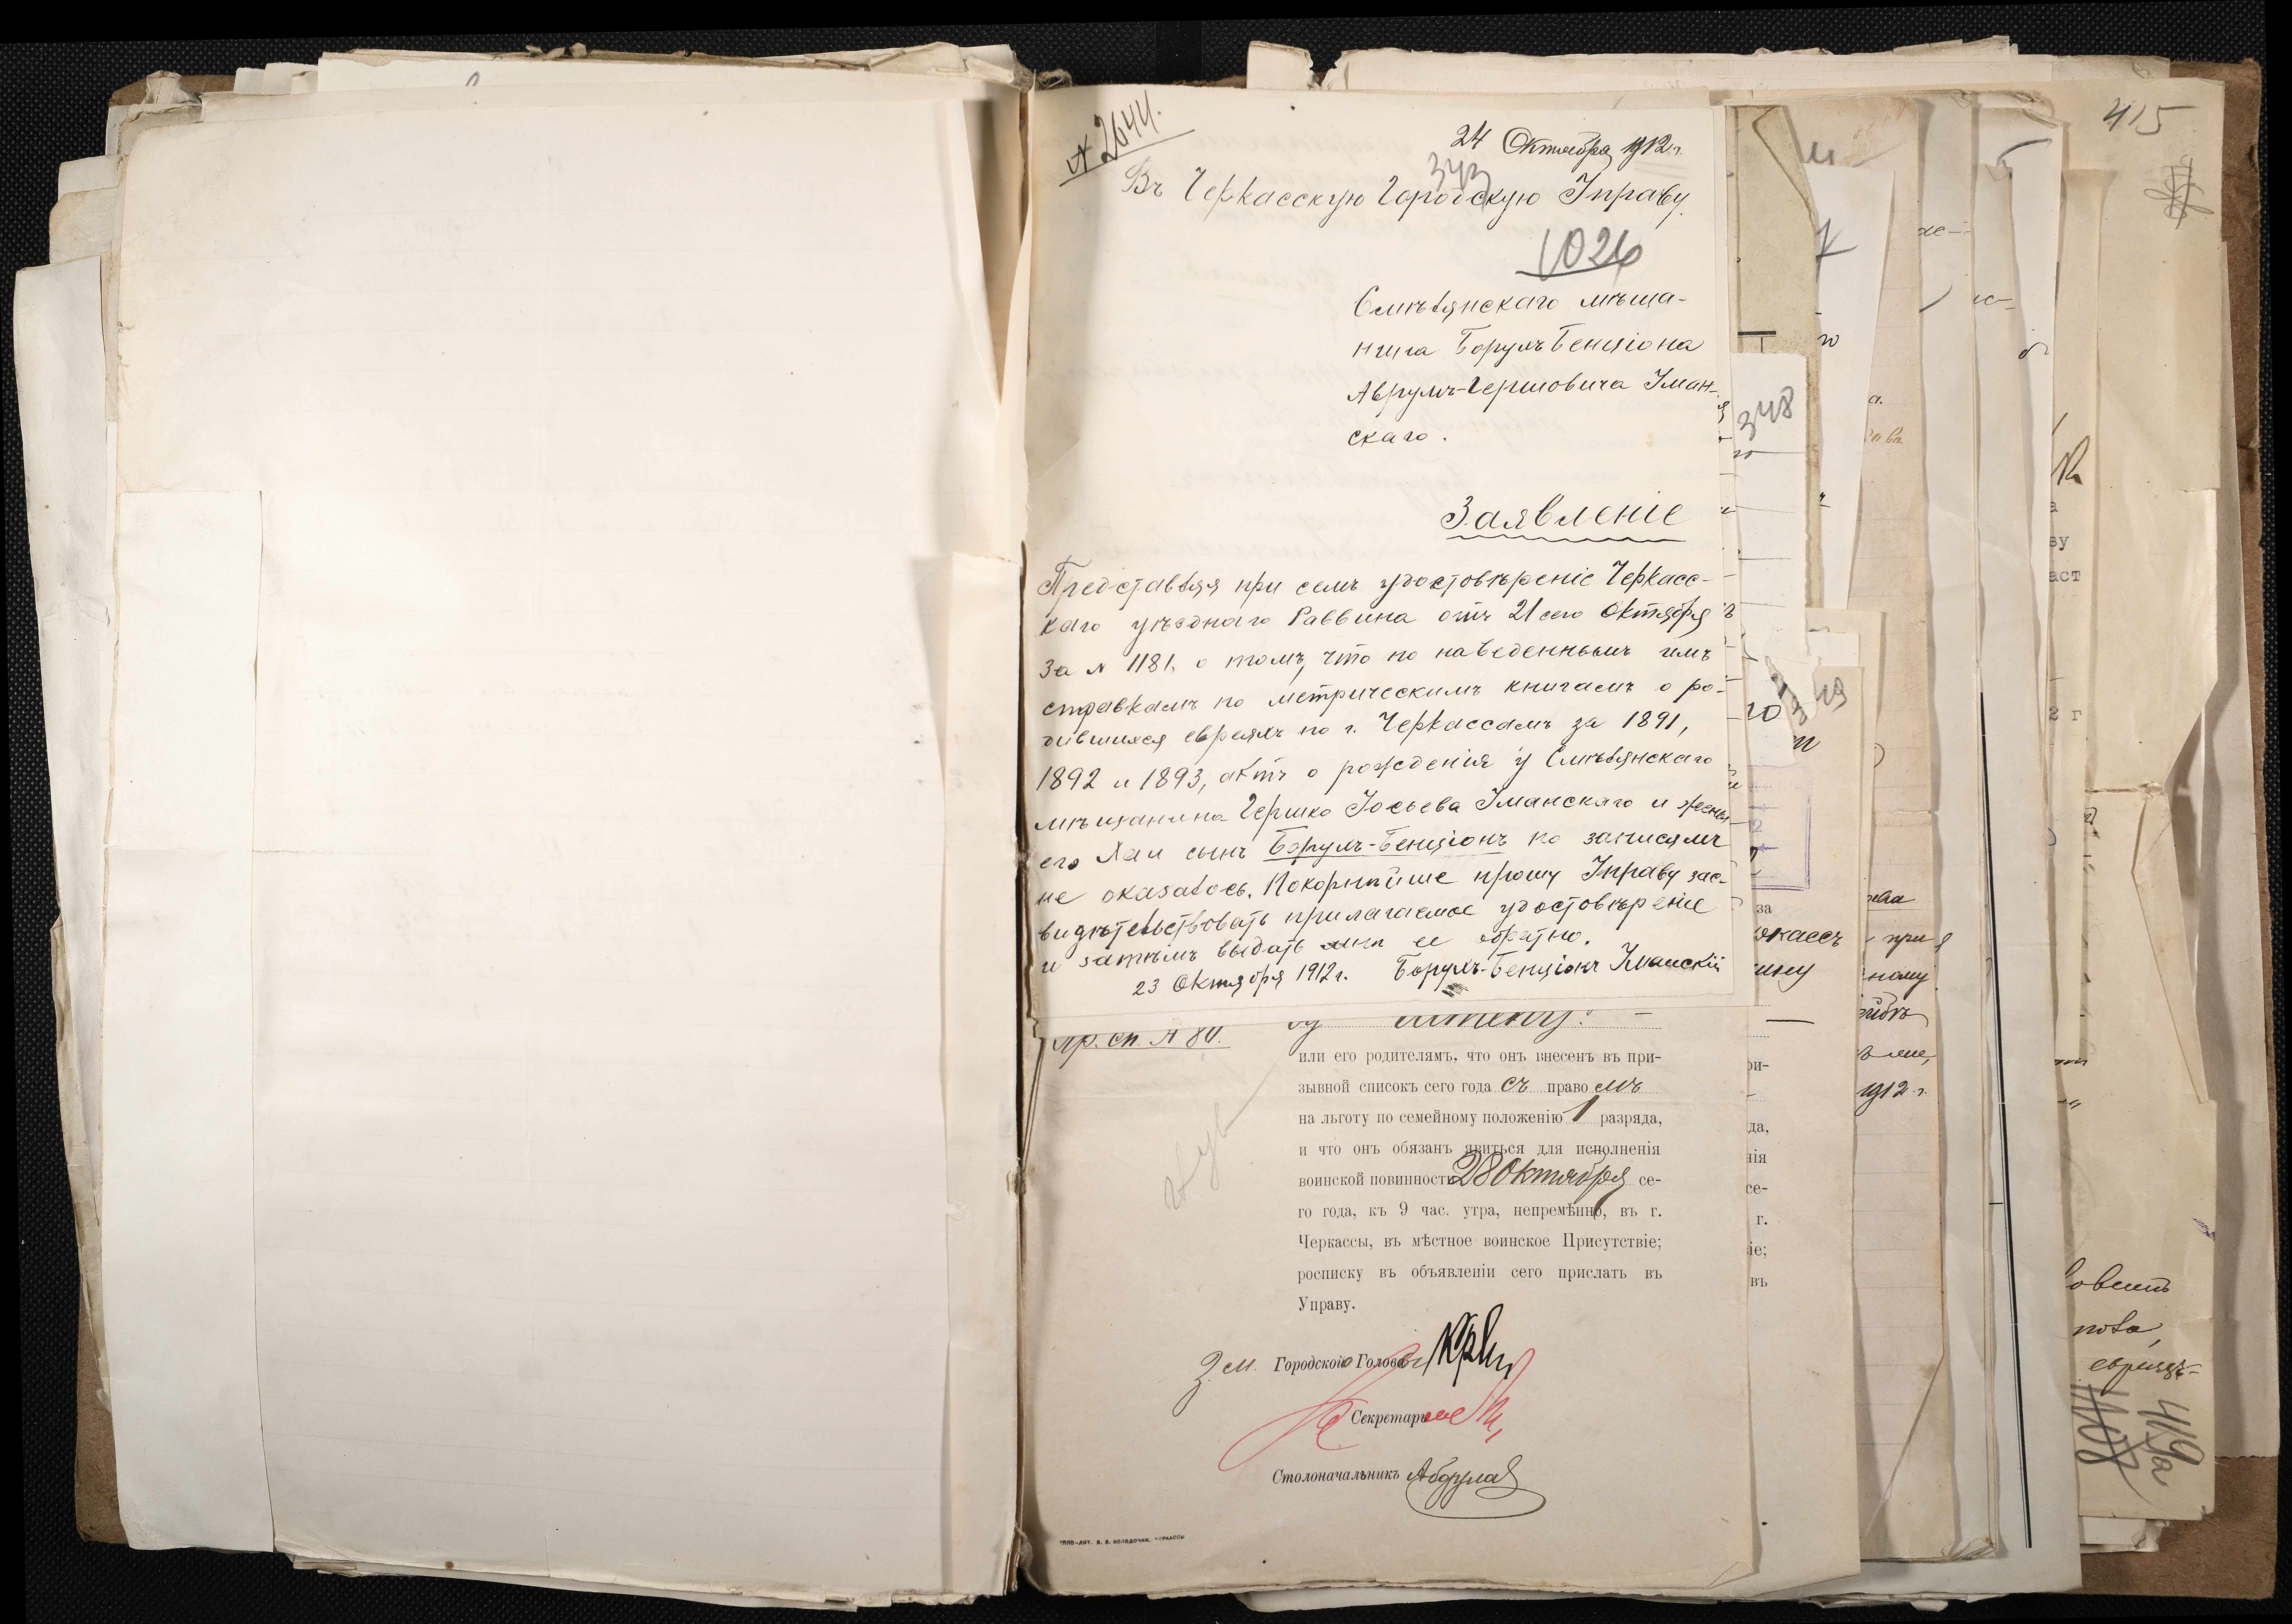 № 2644.
24 Октября 1912 г.
343
Въ Черкасскую Городскую Управу.
1026
Смѣлянскаго мѣща-
нина Борухъ Бенціона
Аврумъ-Гершовича Уман-
скаго.
Заявленіе
Представляя при семъ удостовѣреніе Черкасс-
каго уѣзднаго Раввина отъ 21 сего Октября
за № 1181, о томъ, что по наведеннымъ имъ
справкамъ по метрическимъ книгамъ о ро-
дившихся евреяхъ по г. Черкассамъ за 1891,
1892 и 1893, актъ о рожденія у Смѣлянскаго
мѣщанина Гершко Іосьева Уманскаго и жены
его Хаи сынъ Борухъ-Бенціонъ по записямъ
не оказалось. Покорнѣйше прошу Управу зас-
видѣтельствовать прилагаемое удостовѣреніе
и затѣмъ выдать мнѣ ее обратно.
23 Октября 1912 г. Борухъ-Бенціонъ Уманскій
пр. сп. № 80.
или его родителямъ, что онъ внесенъ въ при-
зывной списокъ сего года съ правомъ
на льготу по семейному положенію 1 разряда,
и что онъ обязанъ явиться для исполненія
воинской повинности 28 Октября се-
го года, къ 9 час. утра, непремѣнно, въ г.
Черкассы, въ мѣстное воинское Присутствіе;
росписку въ объявленіи сего прислать въ
Управу.
Городской Голова
Секретарь
Столоначальникъ
ТИПО-ЛИТ. В. В. КОЛОДОЧКИ, ЧЕРКАССЫ
348
349
за
ри-
да,
нія
се-
г.
іе;
въ
ному
1912 г.
415
419а